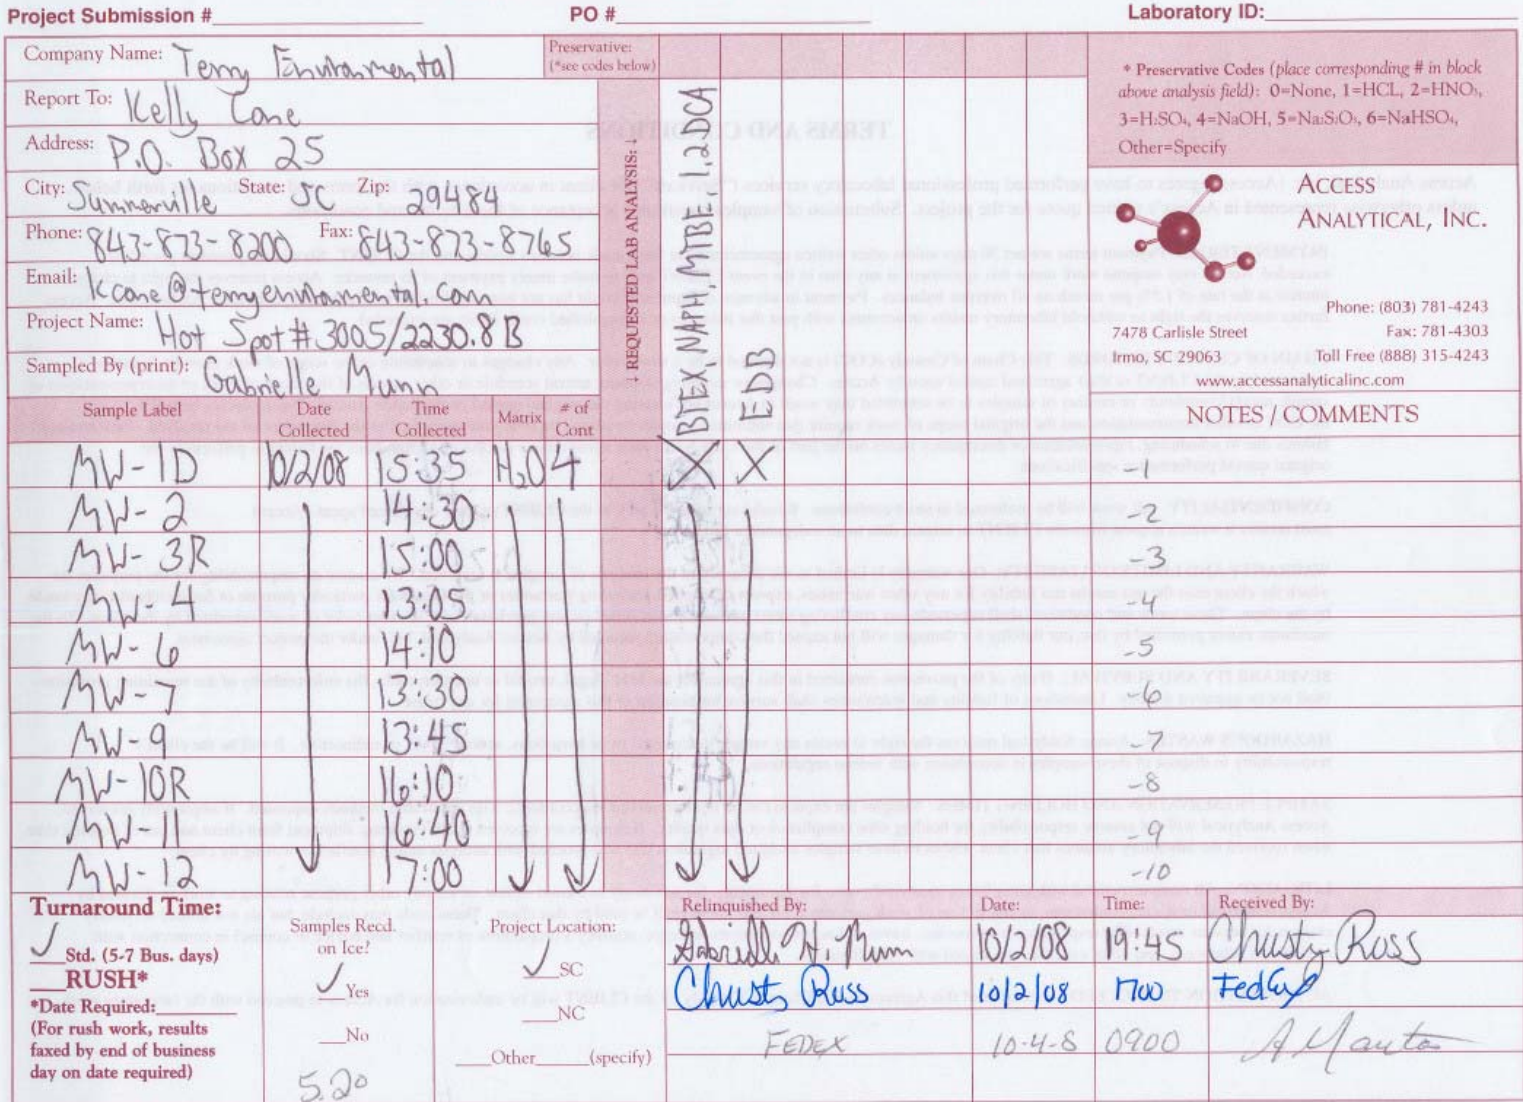 Project Submission #
PO #
Laboratory ID:
Company Name: Terry Environmental
Preservative:
(*see codes below)
Report To: Kelly Cone
Address: P.O. Box 25
City: Summerville State: SC Zip: 29484
Phone: 843-873-8200 Fax: 843-873-8765
Email: kcone@terryenvironmental.com
Project Name: Hot Spot #3005/2230.8B
Sampled By (print): Gabrielle Munn
↓ REQUESTED LAB ANALYSIS: ↓
BTEX, NAPH, MTBE 1,2DCA
EDB
* Preservative Codes (place corresponding # in block
above analysis field): 0=None, 1=HCL, 2=HNO₃,
3=H₂SO₄, 4=NaOH, 5=Na₂S₂O₃, 6=NaHSO₄,
Other=Specify
ACCESS
ANALYTICAL, INC.
7478 Carlisle Street
Irmo, SC 29063
Phone: (803) 781-4243
Fax: 781-4303
Toll Free (888) 315-4243
www.accessanalyticalinc.com
Sample Label Date Collected Time Collected Matrix # of Cont NOTES / COMMENTS
MW-1D 10/2/08 15:35 H2O 4 X X -1
MW-2 14:30 -2
MW-3R 15:00 -3
MW-4 13:05 -4
MW-6 14:10 -5
MW-7 13:30 -6
MW-9 13:45 -7
MW-10R 16:10 -8
MW-11 16:40 -9
MW-12 17:00 -10
Turnaround Time:
✓ Std. (5-7 Bus. days)
RUSH*
*Date Required:
(For rush work, results
faxed by end of business
day on date required)
Samples Recd.
on Ice?
✓ Yes
No
5.2°
Project Location:
✓ SC
NC
Other (specify)
Relinquished By: Date: Time: Received By:
Gabrielle N. Munn 10/2/08 19:45 Christy Ross
Christy Ross 10/2/08 1700 FedEx
FEDEX 10-4-8 0900